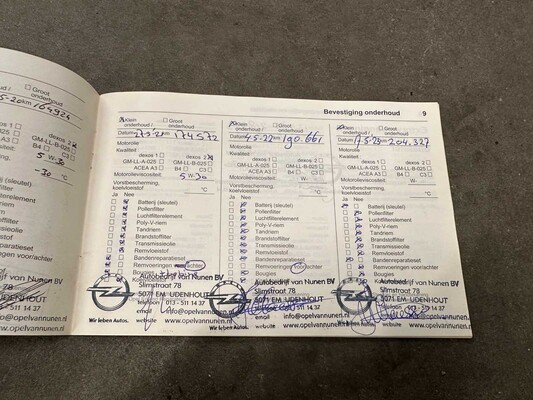 Bevestiging onderhoud 9
Groot
onderhoud
km 164924
dexos 2
GM-LL-B-025
B4 C3
5 W-30
-30 °C
Klein onderhoud / Groot onderhoud
Datum km 174572
Motorolie
Kwaliteit
dexos 1 dexos 2
GM-LL-A-025 GM-LL-B-025
ACEA A3 B4 C3
Motorolieviscositeit 5 W-30
Vorstbescherming,
koelvloeistof °C
Ja Nee
Batterij (sleutel)
Pollenfilter
Luchtfilterelement
Poly-V-riem
Tandriem
Brandstoffilter
Transmissieolie
Remvloeistof
Bandenreparatieset
Remvoeringen achter
Bougies
Autobedrijf van Nunen BV
Slimstraat 78
5071 EM UDENHOUT
telefoon 013 - 511 14 37
email info@opelvannunen.nl
website www.opelvannunen.nl
Wir leben Autos.
Klein onderhoud / Groot onderhoud
Datum 4-5-22 km 190.661
Motorolie
Kwaliteit
dexos 1 dexos 2
GM-LL-A-025 GM-LL-B-025
ACEA A3 B4 C3
Motorolieviscositeit W-
Vorstbescherming,
koelvloeistof °C
Ja Nee
Batterij (sleutel)
Pollenfilter
Luchtfilterelement
Poly-V-riem
Tandriem
Brandstoffilter
Transmissieolie
Remvloeistof
Bandenreparatieset
Remvoeringen voor/achter
Bougies
Autobedrijf van Nunen BV
Slimstraat 78
5071 EM UDENHOUT
013 - 511 14 37
email info@opelvannunen.nl
website www.opelvannunen.nl
Wir leben Autos.
Klein onderhoud / Groot onderhoud
Datum 17-5-23 km 204.327
Motorolie
Kwaliteit
dexos 1 dexos 2
GM-LL-A-025 GM-LL-B-025
ACEA A3 B4 C3
Motorolieviscositeit W-
Vorstbescherming,
koelvloeistof °C
Ja Nee
Batterij (sleutel)
Pollenfilter
Luchtfilterelement
Poly-V-riem
Tandriem
Brandstoffilter
Transmissieolie
Remvloeistof
Bandenreparatieset
Remvoeringen voor/achter
Bougies
Autobedrijf van Nunen BV
Slimstraat 78
5071 EM UDENHOUT
013 - 511 14 37
email info@opelvannunen.nl
website www.opelvannunen.nl
Wir leben Autos.